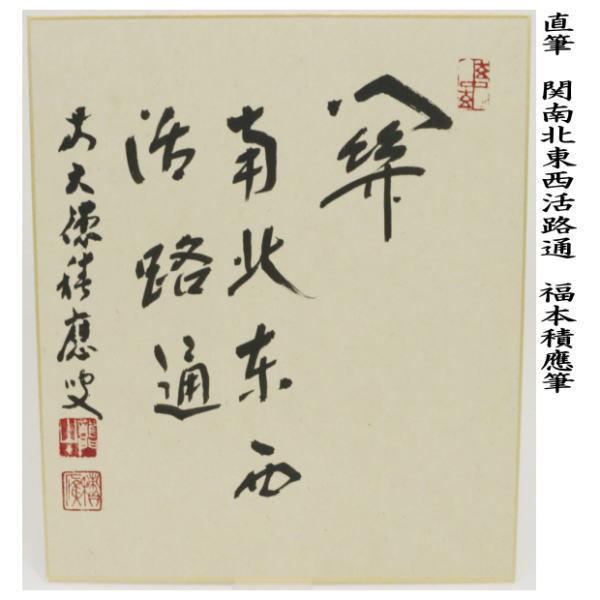 直筆 関南北東西活路通 福本積應筆
関
南北东西
活路通
前大徳積應叟